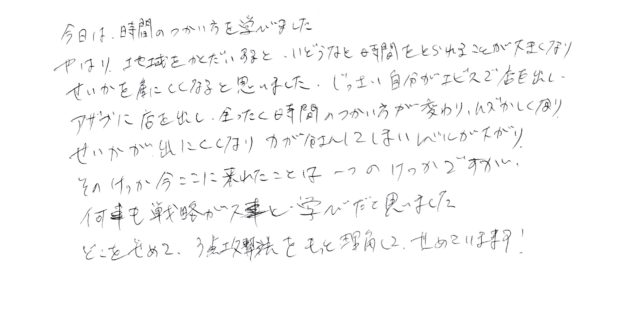 今日は、時間のつかい方を学びました
やはり、地域をかくだいすると、いどうなど時間をとられることが大きくなり
せいかを産にくくなると思いました。じっさい自分がエビスで店を出し、
アザブに店を出し、まったく時間のつかい方が変わり、ムズかしくなり
せいかが出にくくなり力が分さんしてしまいレベルが下がり、
そのけっか今ここに来れたことは一つのけっかですがい、
何事も戦略が大事と学びだと思いました
どこをせめて、3点攻撃法をもっと理解して、せめていきます!